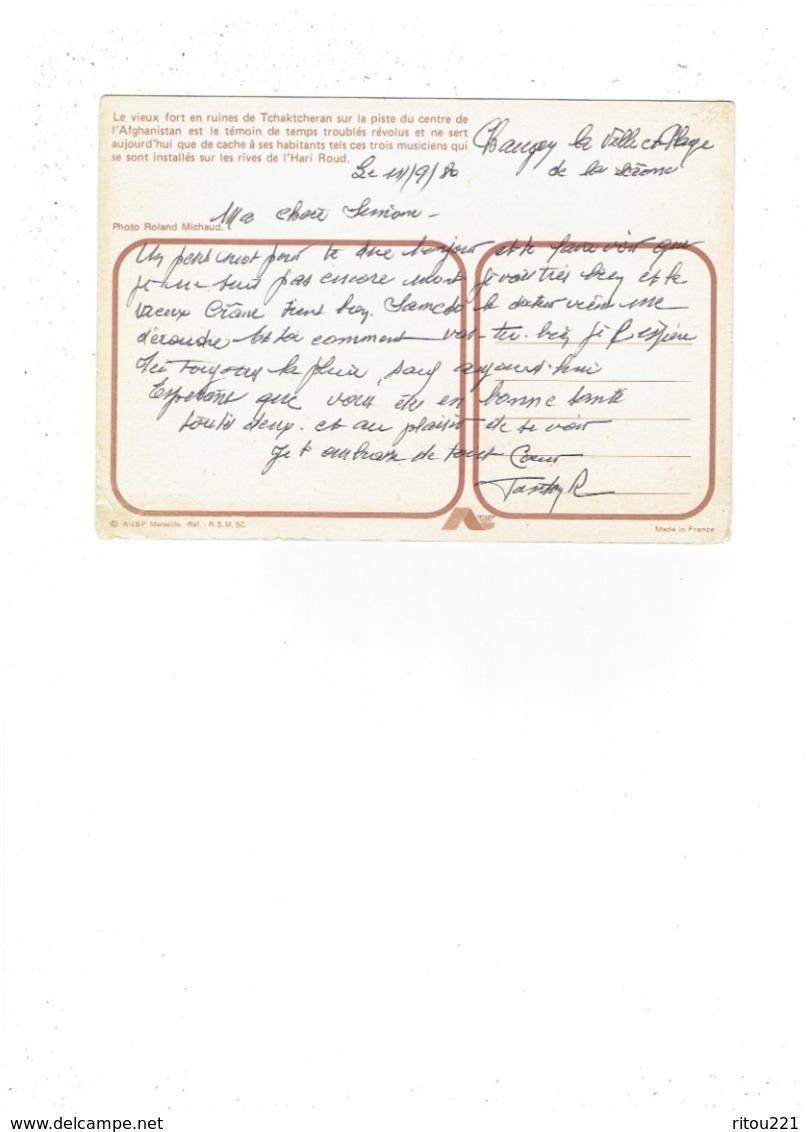 Le vieux fort en ruines de Tchaktcheran sur la piste du centre de
l'Afghanistan est le témoin de temps troublés révolus et ne sert
aujourd'hui que de cache à ses habitants tels ces trois musiciens qui
se sont installés sur les rives de l'Hari Roud.
la Ville et Plage
de la
Le 11/9/80
Ma chère Simone -
Photo Roland Michaud.
Un petit mot pour te dire bonjour et te faire voir que
je ne suis pas encore mort je vais très bien et le
vieux Crâne tient bon. Samedi le docteur viens me
Et toi comment vas-tu. bien je l'espère
Ici toujours la pluie, sauf aujourd'hui
Espérant que vous êtes en bonne santé
toute deux. et au plaisir de te voir
Je t'embrasse de tout Coeur
© AGEP Marseille. Réf. - R.S.M. 5C
Made in France
delcampe.net
ritou221